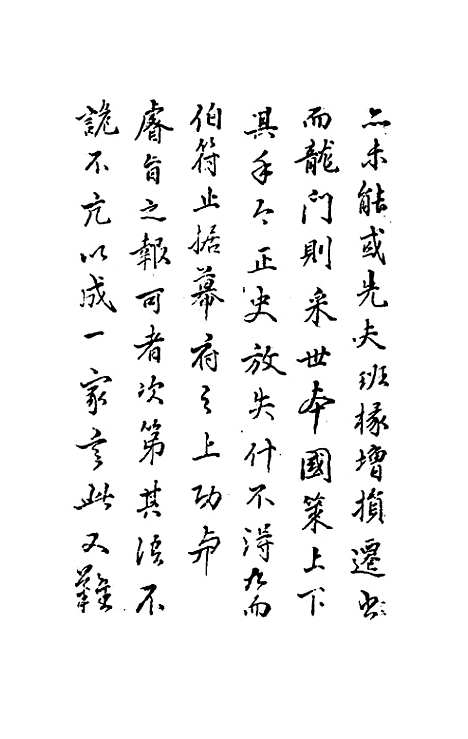 亦未能或先夫班椽增損遷書
而龍門則采世本國策上下
其手今正史放失什不得九而
伯符止据幕府之上功與
睿旨之報可者次第其語不
詭不亢以成一家言此又難